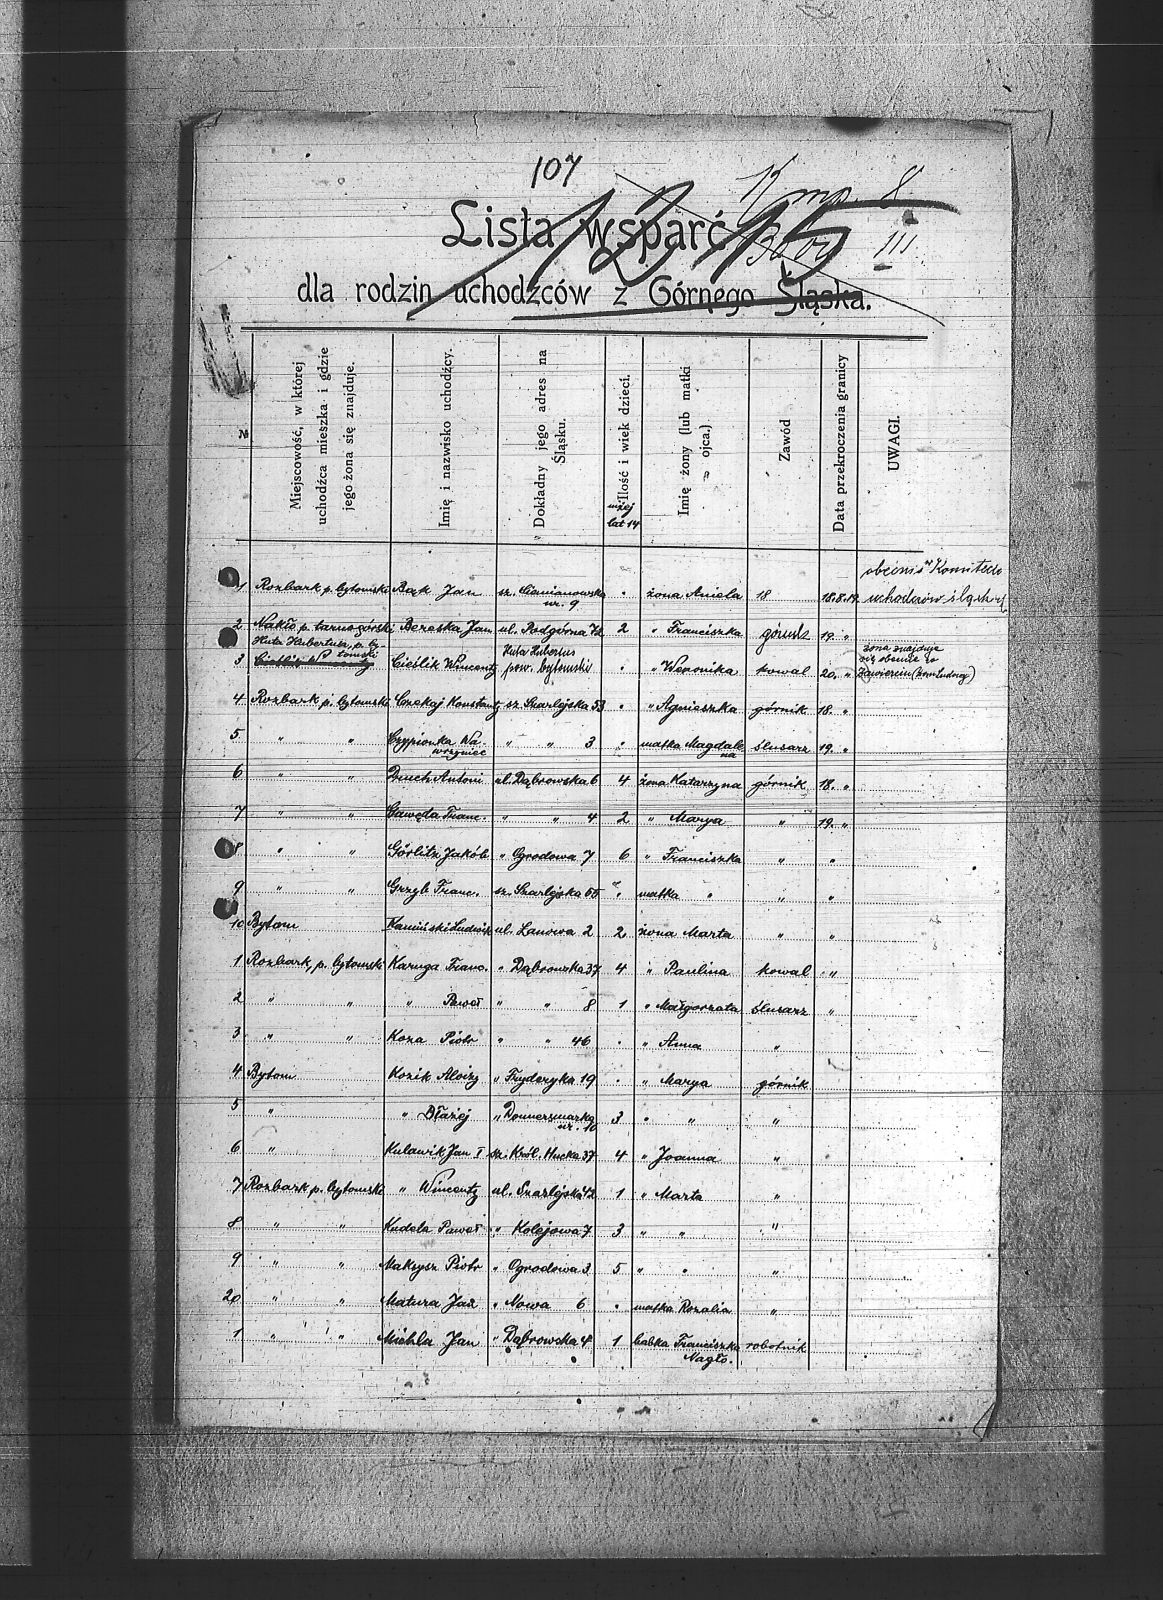 107
Kmp. 8
Lista wsparć
13 15
III
dla rodzin uchodźców z Górnego Śląska.
№
Miejscowość, w której uchodźca mieszka i gdzie jego żona się znajduje.
Imię i nazwisko uchodźcy.
Dokładny jego adres na Śląsku.
Ilość i wiek dzieci.
niżej lat 14
Imię żony (lub matki ojca.)
Zawód
Data przekroczenia granicy
UWAGI.
obecnie w Komitecie
1 Rozbark p. bytomski Bąk Jan sz. Siemianowska nr. 9 " żona Aniela 18 18.8.19. uchodźców
2 Nakło p. tarnogórski Bezeska Jan ul. Podgórna 72 2 " Franciszka górnik 19. "
3 Huta Hubertus, p. bytomski Cieślik Wincenty Huta Hubertus pow. bytomski " " Weronika kowal 20. " żona znajduje się obecnie w Zawierciu
4 Rozbark p. bytomski Czekaj Konstanty sz. Szarlejska 53 " " Agnieszka górnik 18. "
5 " " Czypionka Wawrzyniec " " 3 " matka Magdalena ślusarz 19. "
6 " " Antoni ul. Dąbrowska 6 4 żona Katarzyna górnik 18. "
7 " " Gawęda Franc. " " 4 2 " Marya " 19. "
8 " " Görlitz Jakób " Ogrodowa 7 6 " Franciszka " "
9 " " Grzyb Franc. sz. Szarlejska 55 " matka " " "
10 Bytom Kamiński Ludwik ul. Łanowa 2 2 żona Marta " "
1 Rozbark, p. bytomski Karuga Franc. " Dąbrowska 37 4 " Paulina kowal "
2 " " " Paweł " " 8 1 " Małgorzata ślusarz "
3 " " Koza Piotr " " 46 " " Anna "
4 Bytom Kozik Alojzy " Fryderyka 19 " " Marya górnik
5 " " Błażej " Donnersmarka nr. 10 3 " " "
6 " Kulawik Jan I sz. Król. Hucka 37 4 " Joanna "
7 Rozbark p. bytomski " Wincenty ul. Szarlejska 42 1 " Marta "
8 " " Kudela Paweł " Kolejowa 7 3 " " "
9 " " Maksysz Piotr " Ogrodowa 3 5 " " "
20 " " Matura Jan " Nowa 6 " matka Rozalia "
1 " " Michla Jan " Dąbrowska 4 1 babka Franciszka Nagło. robotnik